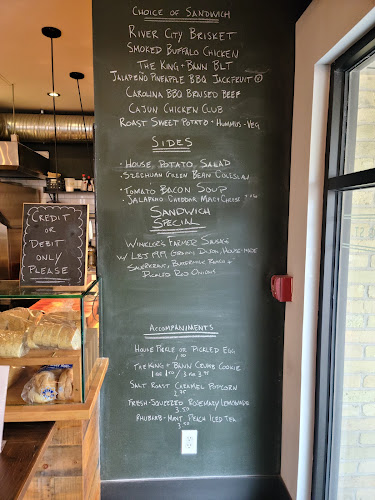 Choice of Sandwich
River City Brisket
Smoked Buffalo Chicken
The King + Bann BLT
Jalapeño Pineapple BBQ Jackfruit
Carolina BBQ Braised Beef
Cajun Chicken Club
Roast Sweet Potato • Hummus - Veg
Sides
• House Potato Salad
• Szechuan Green Bean Coleslaw
• Tomato Bacon Soup
• Jalapeno Cheddar Mac + Cheese
Sandwich
Special
Farmer Sausage
Grainy Dijon, House-made
Sauerkraut, Buttermilk Ranch +
Pickled Red Onions
Credit or
Debit
only
Please
Accompaniments
House Pickle or Pickled Egg
The King + Bann Crumb Cookie
Salt Roast Caramel Popcorn
Fresh-Squeezed Rosemary Lemonade
3.50
Rhubarb-Mint Peach Iced Tea
3.50